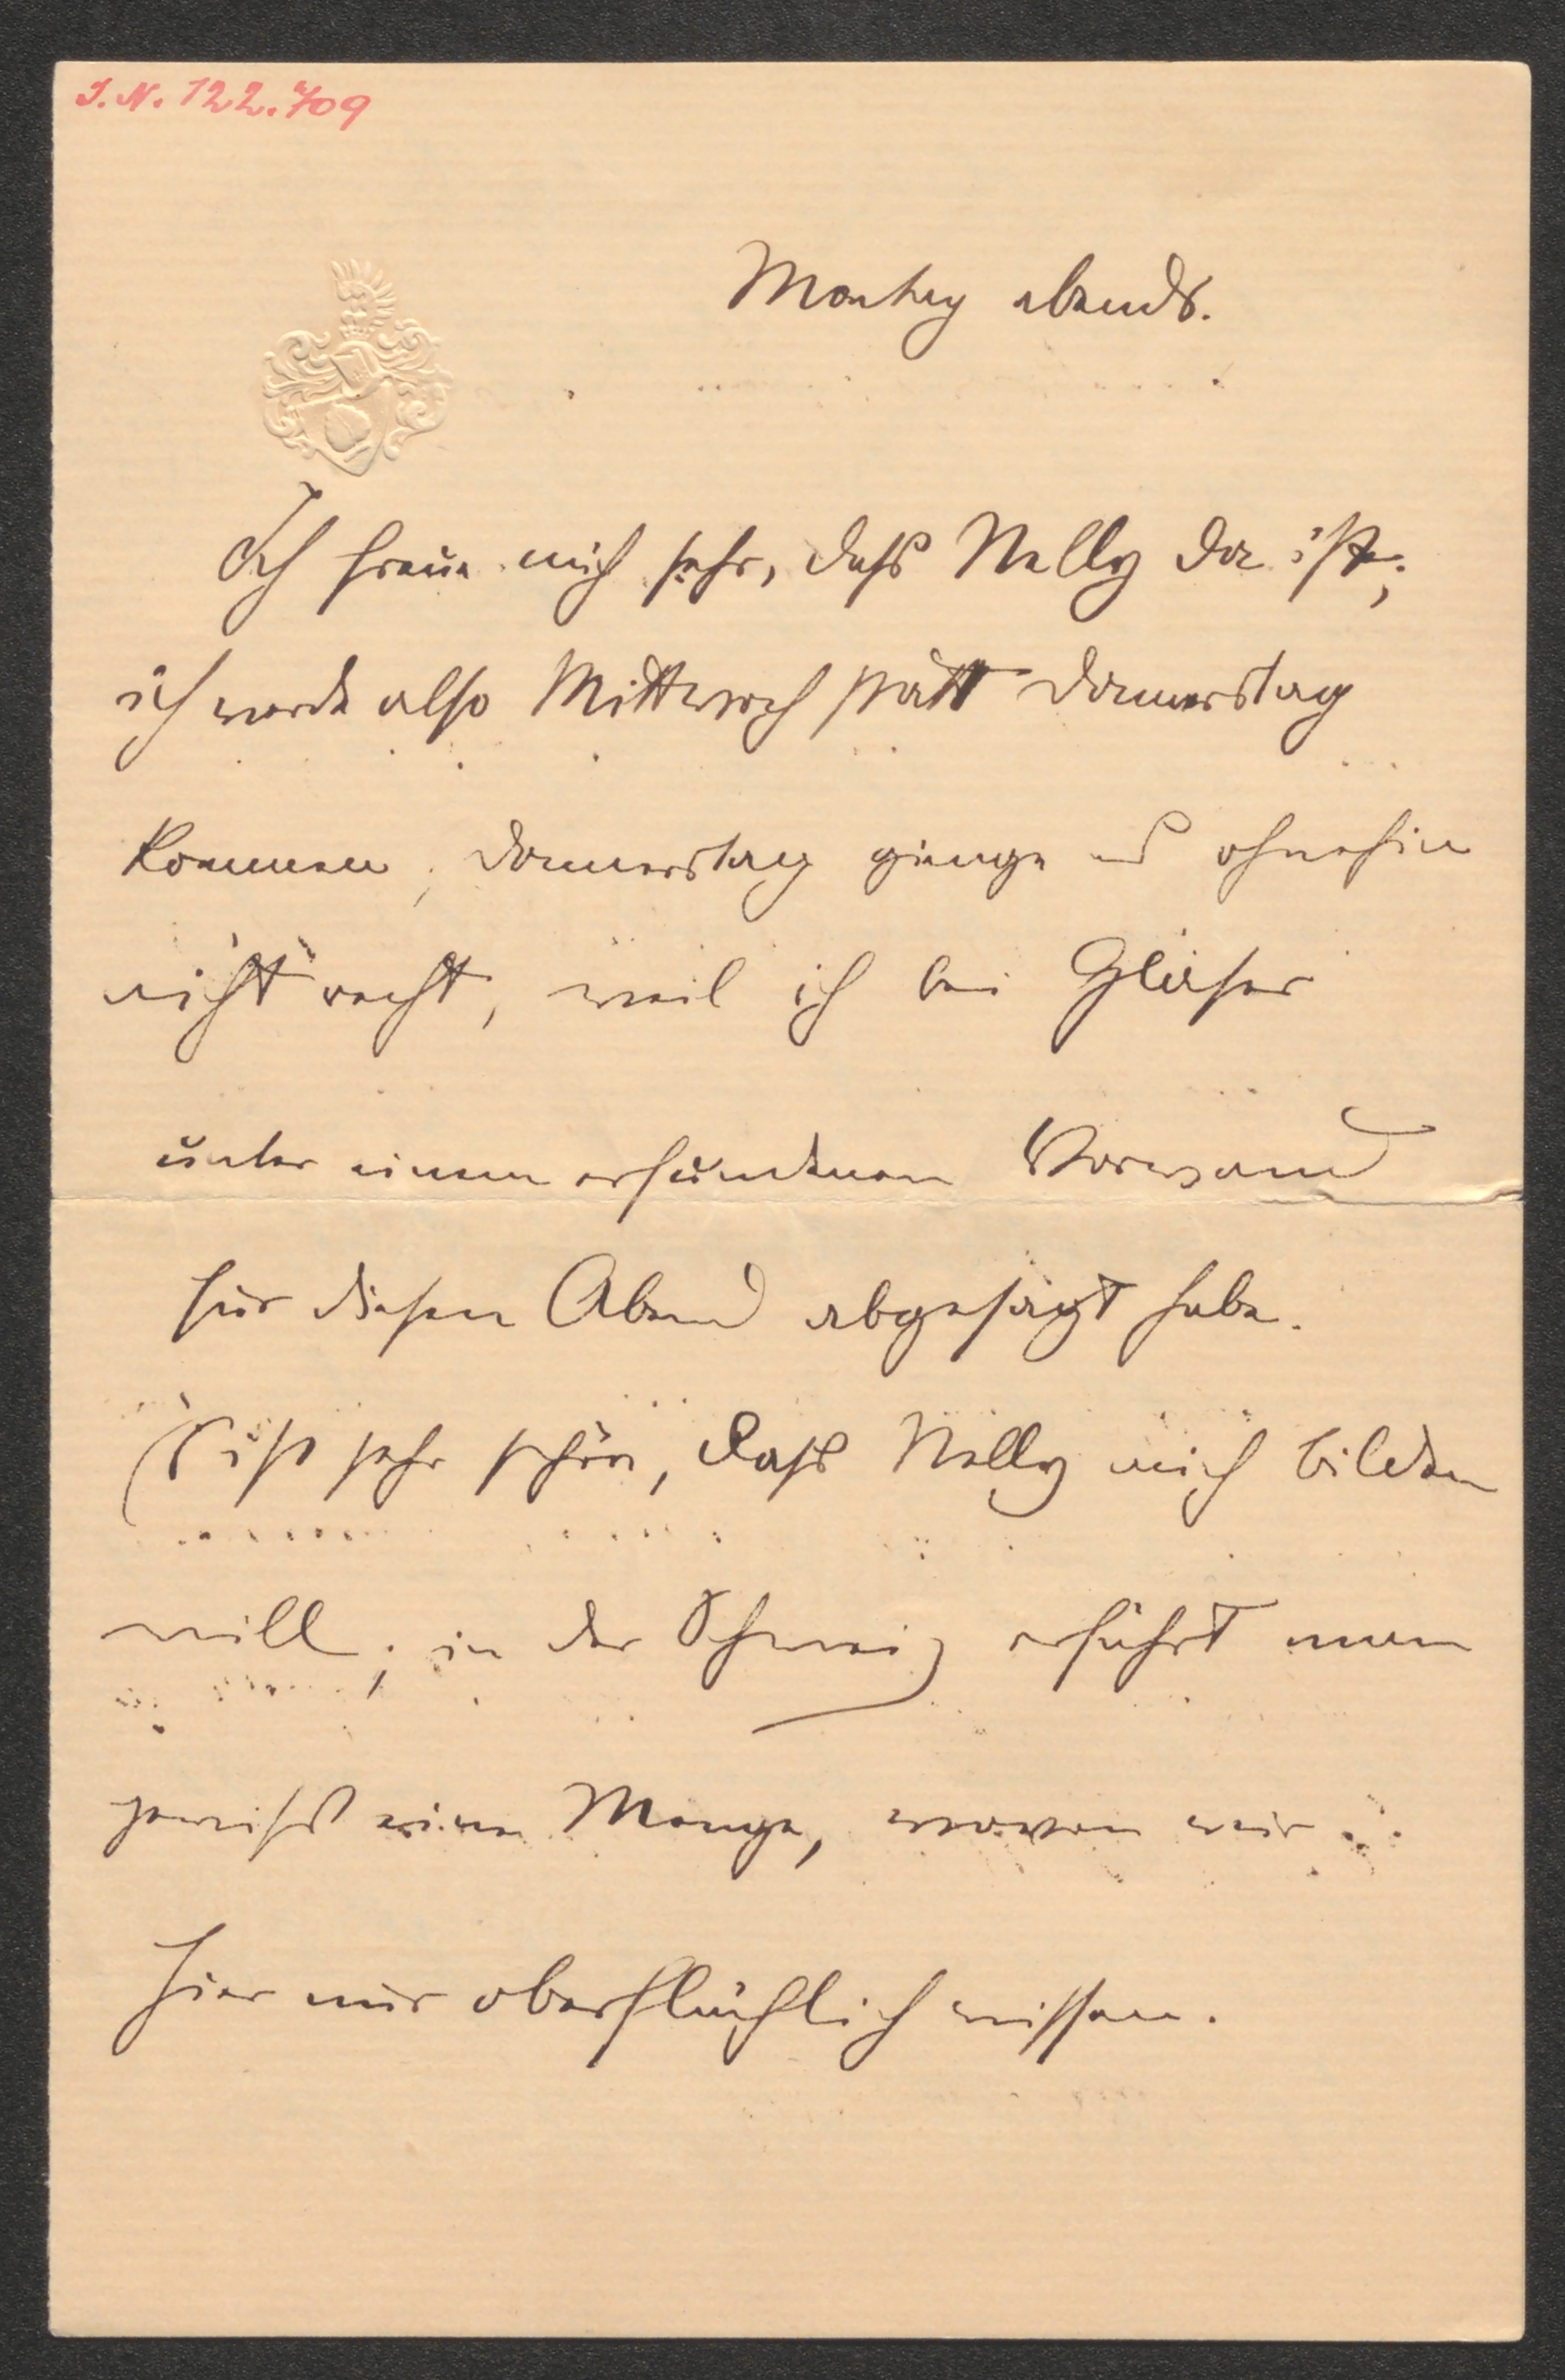 I. N. 122.709
Montag abends.
Ich freue mich sehr, dass Nelly da ist;
ich werde also Mittwoch statt Donnerstag
kommen; Donnerstag gienge es ohnehin
nicht recht, weil ich bei Gläser
unter einem erfundenen Vorwand
für diesen Abend abgesagt habe.
Es ist sehr schön, dass Nelly mich bilden
will; in der Schweiz erfährt man
gewiss eine Menge, wovon wir
hier nur oberflächlich wissen.